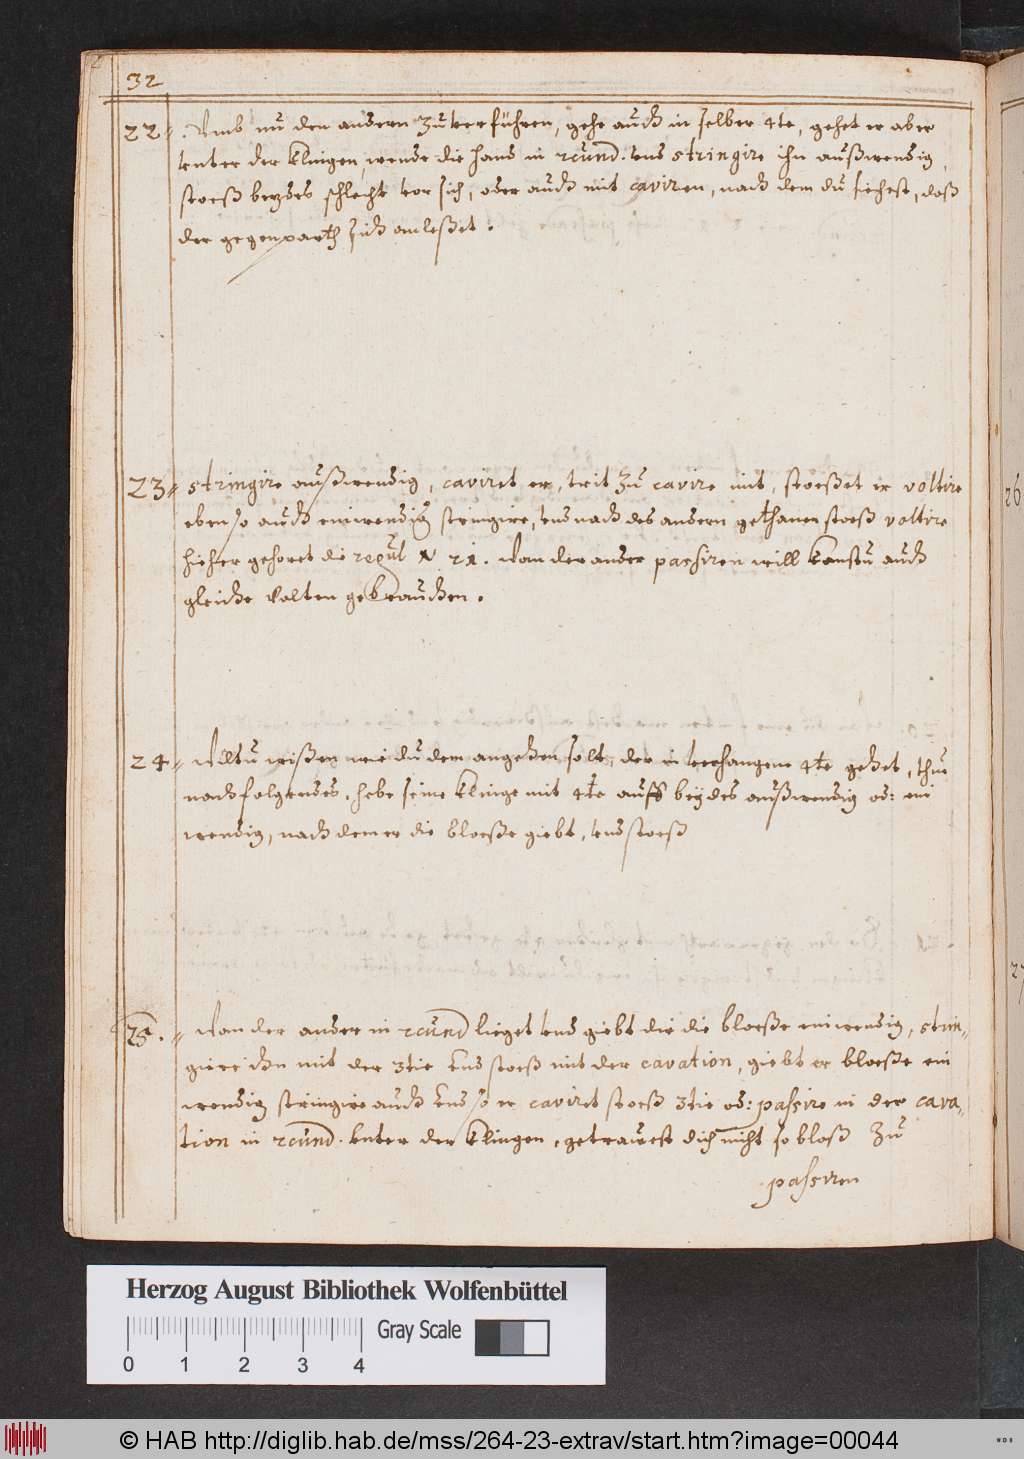 32
22 Umb nu den andern zu verführen, gehe auch in selber 4te, gehet er aber
unter der klingen, wende die hand in 2cund. und stringire ihn außwendig,
stoeß beydes schlecht vor sich, oder auch mit caviren, nach dem du siehest, daß
der gegenparth sich anleßet.
23 stringire außwendig, caviret er, trit zu cavire mit, stoeßet er voltire
eben so auch einwendig stringire, und nach des andern gethanen stoeß voltire
hieher gehoret die regul N 21. Wan der ander passiren will kanstu auch
gleiche Volten gebrauchen.
24 Wiltu wißen wie du dem angehen solt, der in verhangene 4te gehet, thue
nachfolgendes, hebe seine klinge mit 4te auff beydes außwendig od: ein
wendig, nach dem er die bloeße giebt, und stoeß
25. Wan der ander in 2cund lieget und giebt dir die bloeße einwendig, strin-
gire ihn mit der 3tie und stoeß mit der cavation, giebt er bloeße ein
wendig stringire auch und so er caviret stoeß 3tie od: passire in der cava-
tion in 2cund. unter der klingen, getrawest dich nicht so bloß zu
passiren
26
27
Herzog August Bibliothek Wolfenbüttel
Gray Scale
0 1 2 3 4
© HAB http://diglib.hab.de/mss/264-23-extrav/start.htm?image=00044